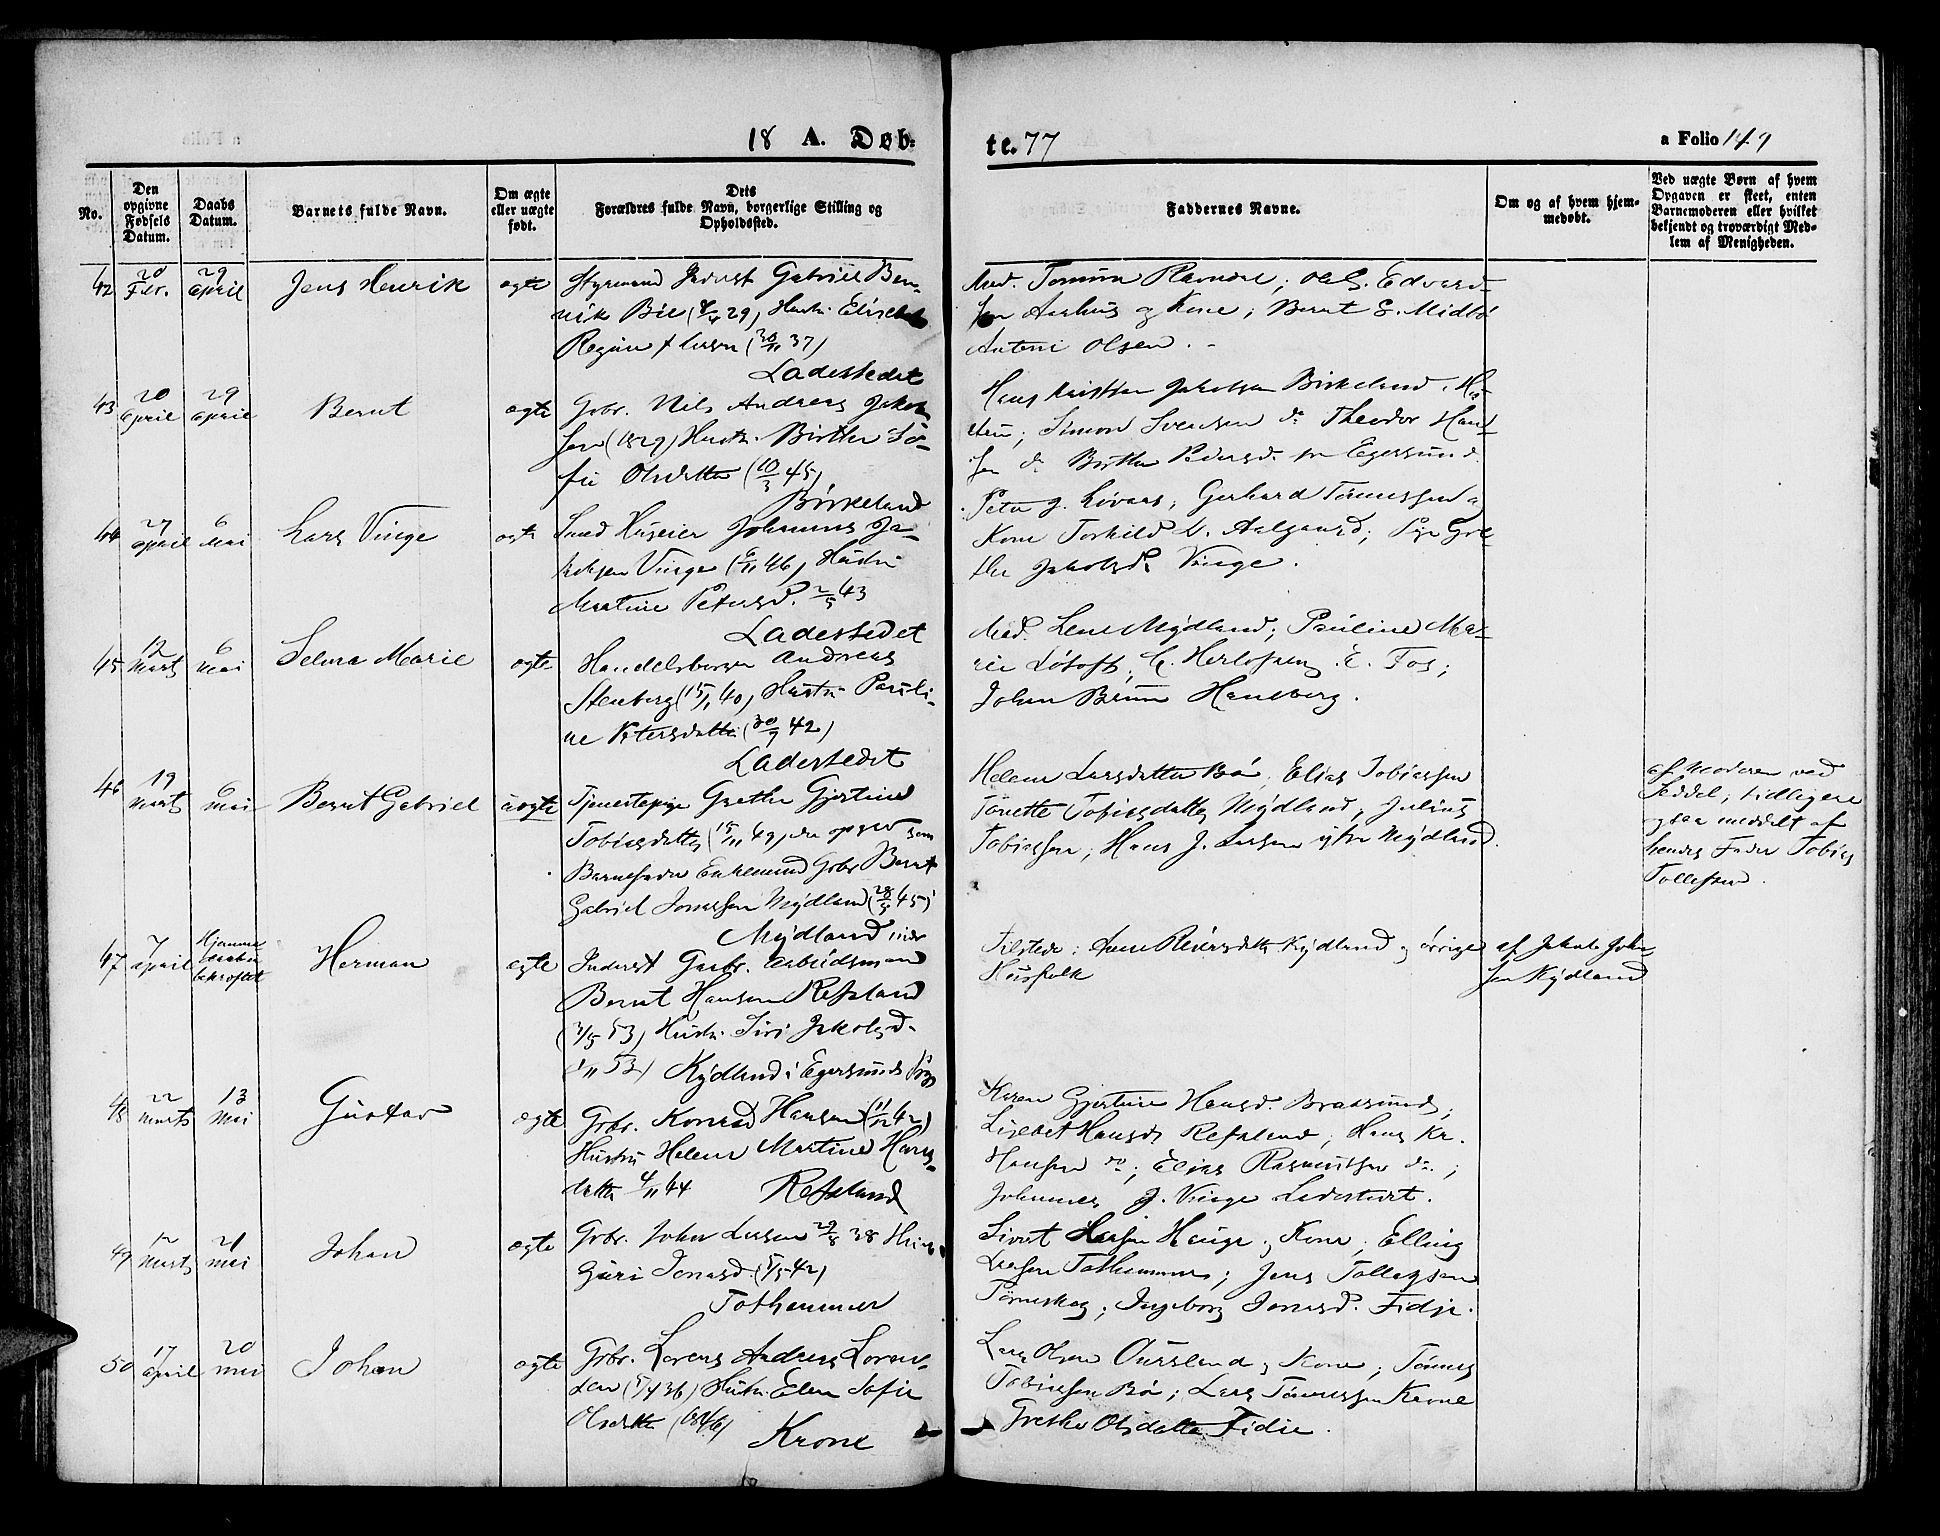 18 A. Døb-
te. 77
a Folio 149
No.
Den opgivne Fødsels Datum.
Daabs Datum.
Barnets fulde Navn.
Om ægte eller uægte født.
Dets Forældres fulde Navn, borgerlige Stilling og Opholdssted.
Faddernes Navne.
Om og af hvem hjem-medøbt.
Ved uægte Børn af hvem Opgaven er skeet, enten Barnemoderen eller hvilket bekjendt og troværdigt Med-lem af Menigheden.
42
20 Febr.
29 april
Jens Henrik
ægte
Styrmand Gabriel Ben-
rik Bie 29) Hustr. Elisabeth
Regine 30/11 37)
Ladestedet
Mad. Edvard-
sen Aarhus og Kone; Bernt E. Midbö
Antoni Olsen.
43
20 april
29 april
Bernt
ægte
Gbr. Nils Andreas Jakob-
sen (1829) Hustr. Birthe So-
fie Olsdatter (10/3 45)
Birkeland
Hans Kristian Jakobsen Birkeland, Hu-
stru; Simon Svendsen do Theodor Han-
sen do Birthe Pedersd. fra Egersund.
44
27 april
6 mai
Lars Vinge
ægte
Huseier Johannes Ja-
kobsen Vinge 46) Hustru
Martine Petersd. 2/5 43
Ladestedet
Peter g. Lövaas; Gerhard Tönnessen og
Kone Torkild Aalgaard; Pige Gre-
the Jakobsd. Vinge.
45
12 Marts
6 mai
Selma Marie
ægte
Handelsborger Andreas
Stenberg (15/1 40) Hustru Pauli-
ne Petersdatter (30/9 42)
Ladestedet
Mad. Lene Mydland; Pauline Ma-
rie Hertofsen E. Fos;
Johan Brun Hansberg.
46
19 Marts
6 mai
Bernt Gabriel
uægte
Tjenestepige Grethe Gjertine
Tobiasdatter (15/11 49) opgiv som
Barnefader Enkemand Gbr Bernt
Gabriel Jonassen Mydland (28/3 45)
Mydland
Helene Larsdatter Bö, Elias Tobiassen
Tönette Tobiasdatter Mydland; Julius
Tobiassen; Hans J. Larsen ytre Mydland.
af Moderen ved
Seddel; tidligere
ogsaa meddelt af
hendes Fader Tobias
Tollefsen.
47
7 april
Hjemme-daaben bekræftet
Herman
ægte
Inderst Gaabr. arbeidsmand
Bernt Hansen Refsland
53) Hustr. Siri Jakobsd.
53) Kydland i Egersunds
Tilstede: Ane Reiersdatter Kydland og övrige
Husfolk
af Jakob John-
sen Kydland
48
22 Marts
13 mai
Gustav
ægte
Gbr. Konrad Hansen (11/12 42)
Hustru Helene Martine Hans-
datter 4/11 44 Refsland
Karen Gjertine Hansd. Brassund;
Lisebet Hansd. Refsland; Hans Kr.
Hansen do; Elias Rasmussen do;
Johannes J. Vinge Ladestedet.
49
12 Marts
21 mai
Johan
ægte
Gbr. Johan Larsen 29/8 38 Hustr.
Guri Jonasd (5/5 42)
Tothammer
Sivert Hansen Hauge og Kone; Elling
Larsen Tothammer; Jens Tollagsen
Törneskog; Ingeborg Jonasd. Fidje.
50
17 april
20 mai
Johan
ægte
Gbr. Lorens Andreas Loren-
sen (5/4 36) Hustr. Elen Sofie
Olsdatter (1846)
Krone
Lars Olsen Ouesland og Kone; Tönnes
Tobiassen Bö; Lars Tönnessen Krone
Grethe Olsdatter Fidje.